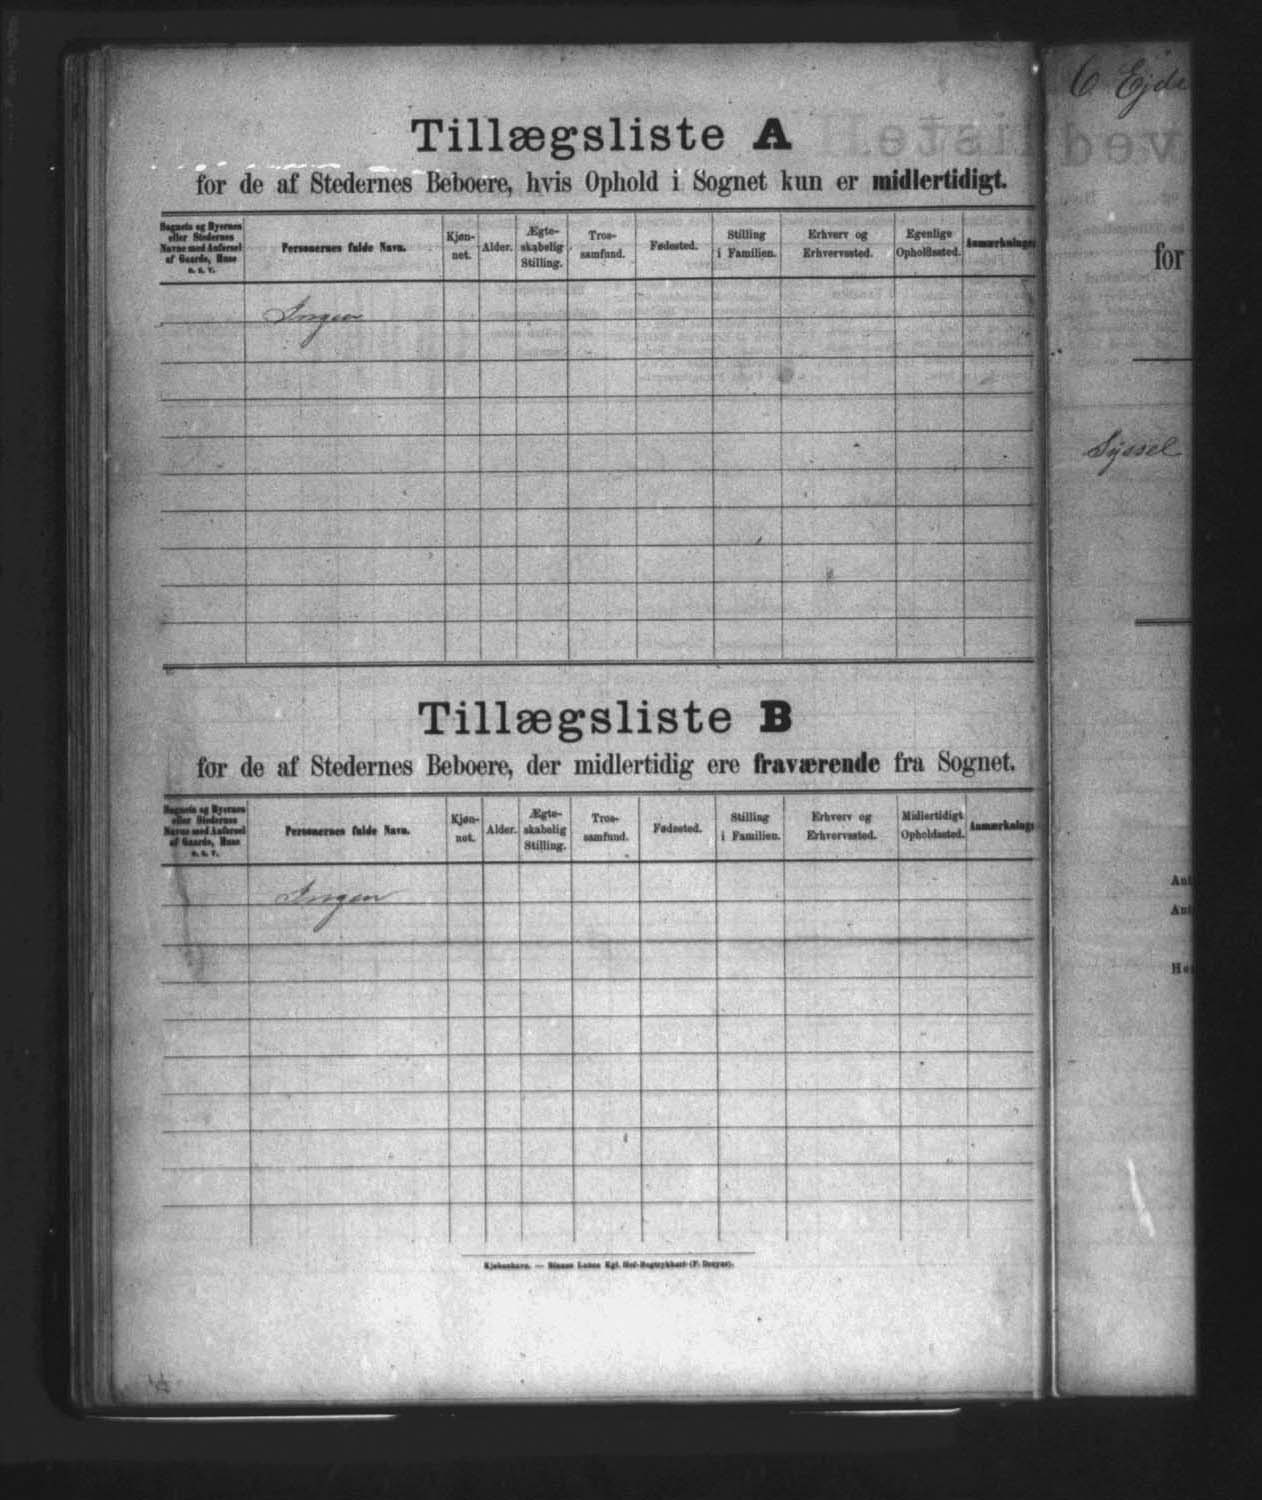 Tillægsliste A
for de af Stedernes Beboere, hvis Ophold i Sognet kun er midlertidigt.
Sognets og Byernes eller Stedernes Navne med Anførsel af Gaarde, Huse o. s. v.
Personernes fulde Navn.
Kjøn-
net.
Alder.
Ægte-
skabelig
Stilling.
Tros-
samfund.
Fødested.
Stilling
i Familien.
Erhverv og
Erhvervssted.
Egenlige
Opholdssted.
Anmærkninger
Ingen
Tillægsliste B
for de af Stedernes Beboere, der midlertidig ere fraværende fra Sognet.
Sognets og Byernes eller Stedernes Navne med Anførsel af Gaarde, Huse o. s. v.
Personernes fulde Navn.
Kjøn-
net.
Alder.
Ægte-
skabelig
Stilling.
Tros-
samfund.
Fødested.
Stilling
i Familien.
Erhverv og
Erhvervssted.
Midlertidigt
Opholdssted.
Anmærkninge
Ingen
Kjøbenhavn. — Bianco Lunos Kgl. Hof-Bogtrykkeri (F. Dreyer).
Ejde
for
Syssel
Ant
Ant